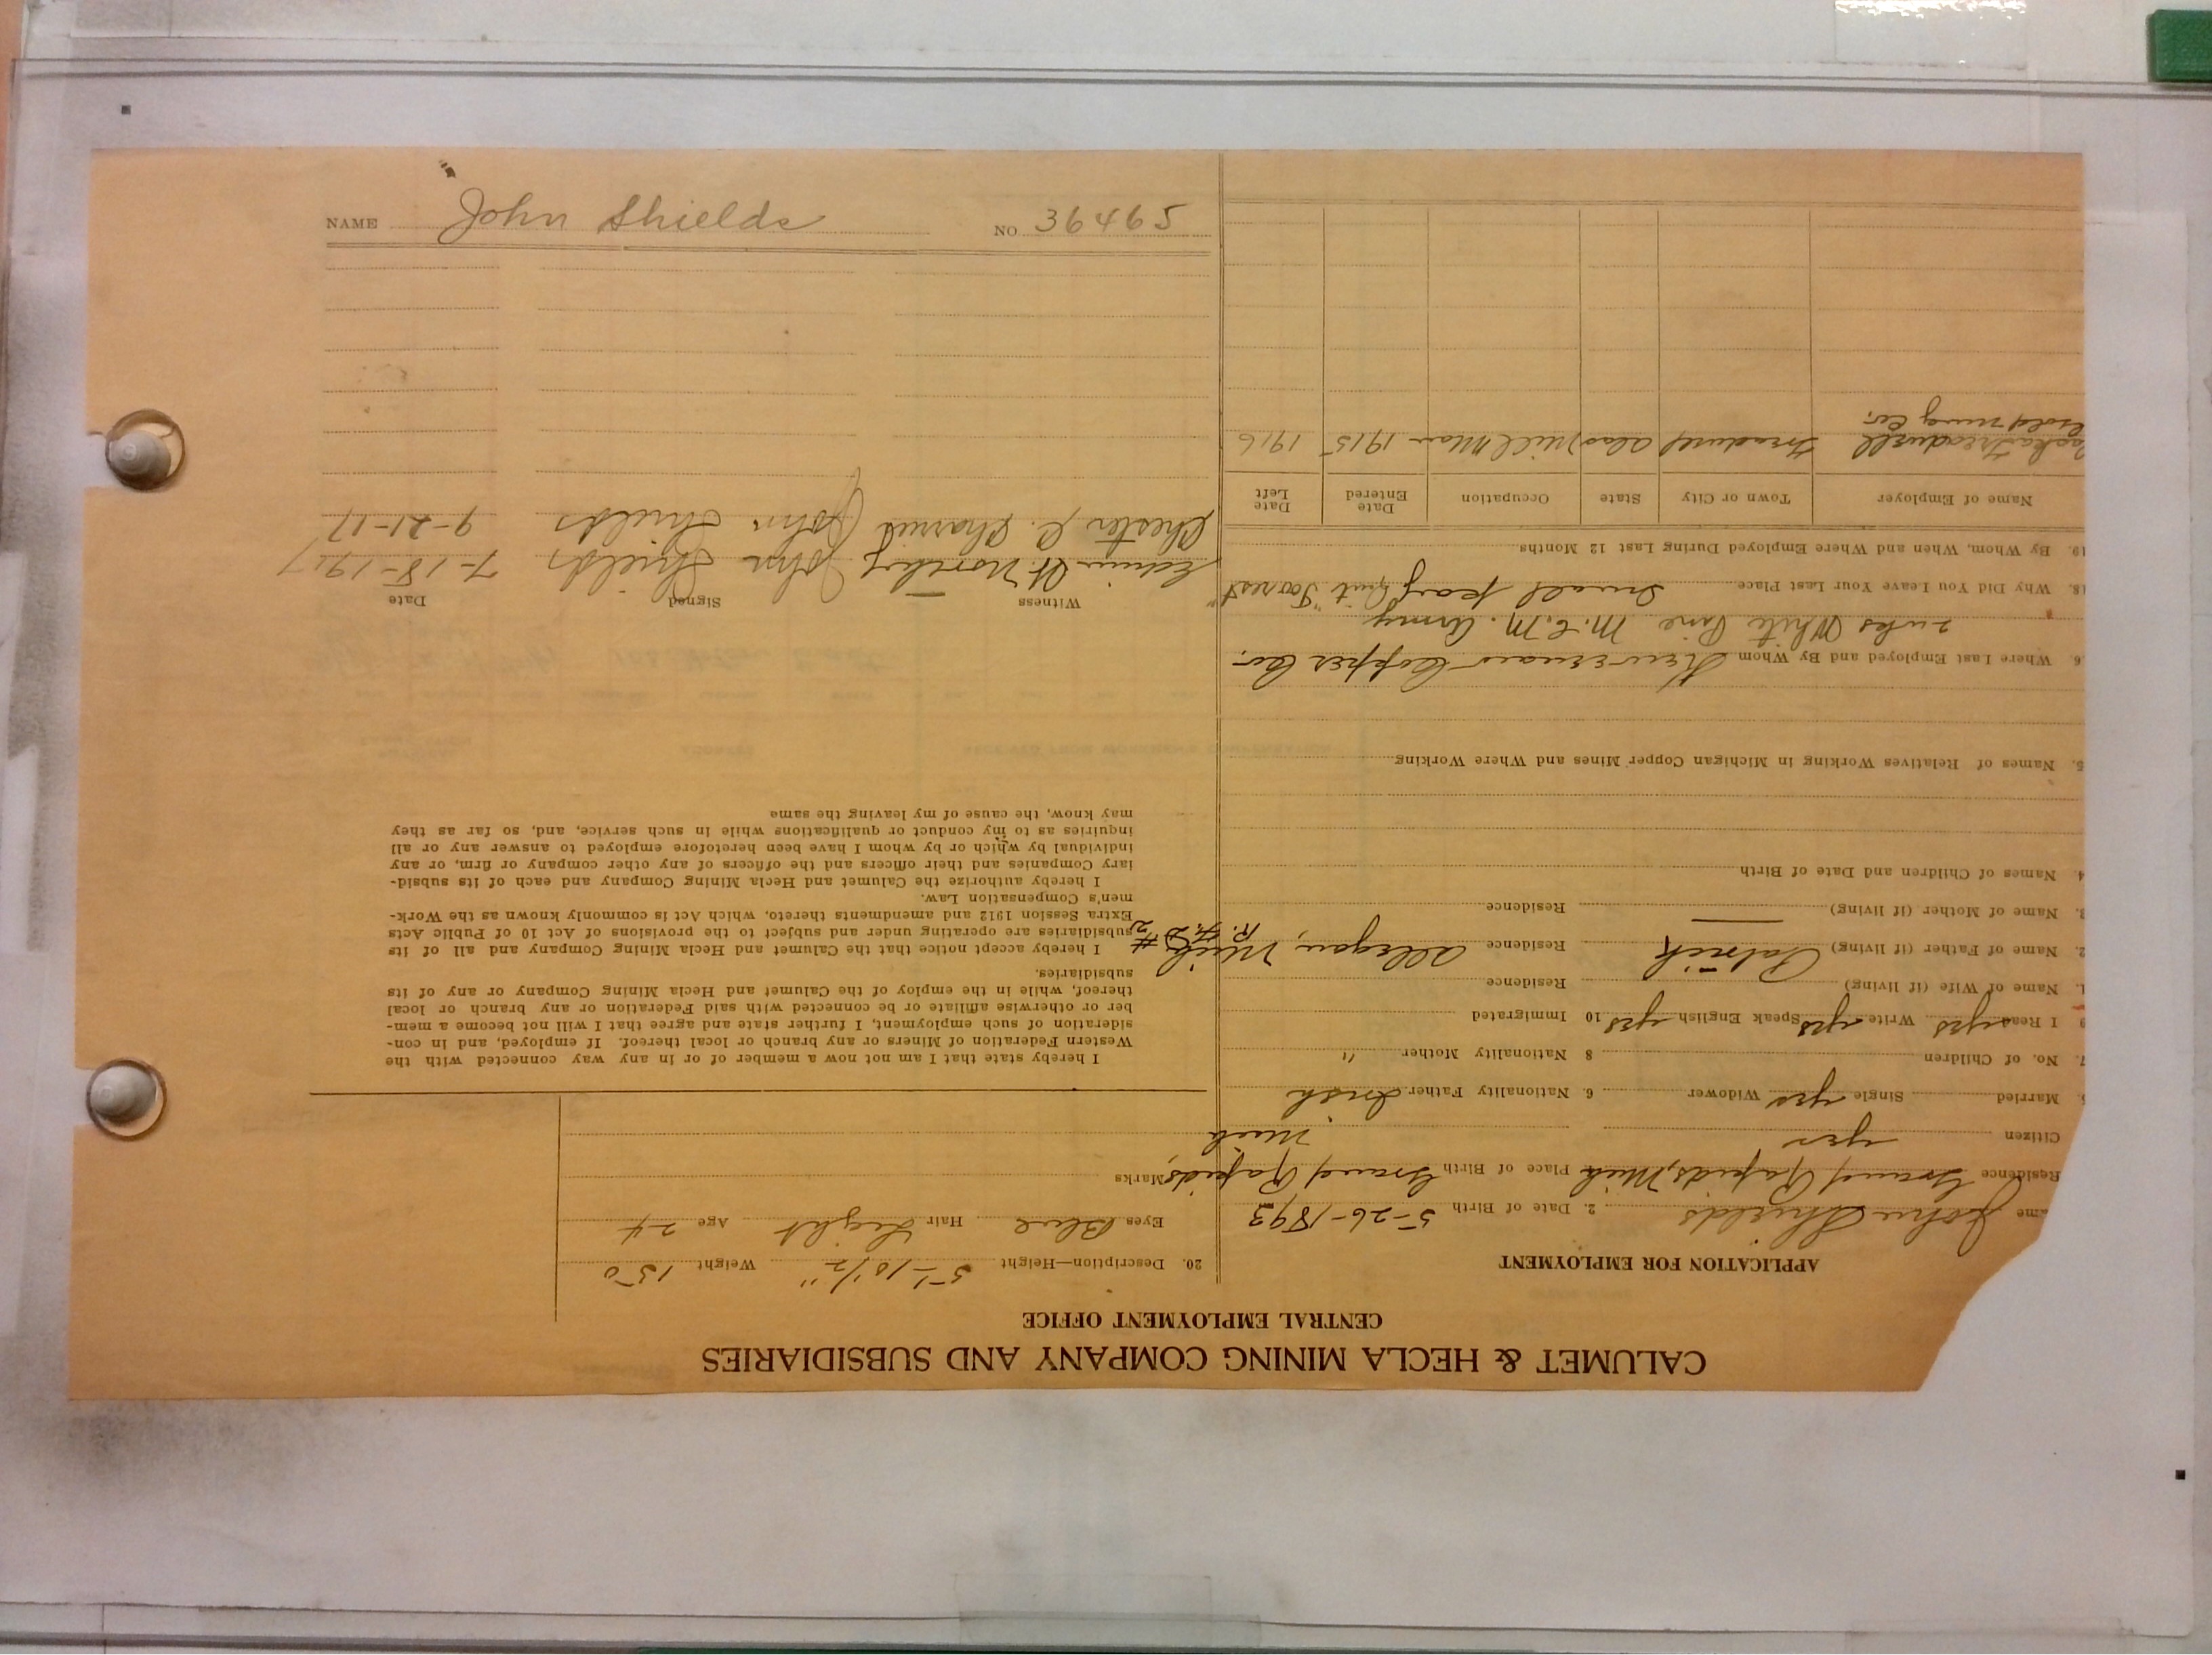 NAME John Shields NO 36465
CALUMET & HECLA MINING COMPANY AND SUBSIDIARIES
CENTRAL EMPLOYMENT OFFICE
APPLICATION FOR EMPLOYMENT
ame John Shields 2. Date of Birth 5-26-1893
Residence Grand Rapids, Mich Place of Birth Grand Rapids, Mich
Citizen yes
5. Married Single yes Widower 6. Nationality Father Irish
7. No. of Children 8 Nationality Mother "
9 I Read yes Write yes Speak English yes 10 Immigrated
1. Name of Wife (if living) Residence
2. Name of Father (if living) Patrick Residence Allegan, Mich R.F.D #2
3. Name of Mother (if living) — Residence
4. Names of Children and Date of Birth
5. Names of Relatives Working in Michigan Copper Mines and Where Working
6. Where Last Employed and By Whom Keweenaw Copper Co.
2 wks White Pine M.C.M. Army
18. Why Did You Leave Your Last Place Small pay Quit "
19. By Whom, When and Where Employed During Last 12 Months
Name of Employer Town or City State Occupation Date Entered Date Left
aska Treadwell Gold Mining Co. Treadwell Alas Mill Man 1915 1916
20. Description—Height 5'-10½" Weight 150
Eyes Blue Hair Light Age 24
Marks
I hereby state that I am not now a member of or in any way connected with the
Western Federation of Miners or any branch or local thereof. If employed, and in con-
sideration of such employment, I further state and agree that I will not become a mem-
ber or otherwise affiliate or be connected with said Federation or any branch or local
thereof, while in the employ of the Calumet and Hecla Mining Company or any of its
subsidiaries.
I hereby accept notice that the Calumet and Hecla Mining Company and all of its
subsidiaries are operating under and subject to the provisions of Act 10 of Public Acts
Extra Session 1912 and amendments thereto, which Act is commonly known as the Work-
men's Compensation Law.
I hereby authorize the Calumet and Hecla Mining Company and each of its subsid-
iary Companies and their officers and the officers of any other company or firm, or any
individual by which or by whom I have been heretofore employed to answer any or all
inquiries as to my conduct or qualifications while in such service, and, so far as they
may know, the cause of my leaving the same
Witness Signed Date
Edwin W. John Shields 7-18-1917
Chester C. John Shields 9-21-17